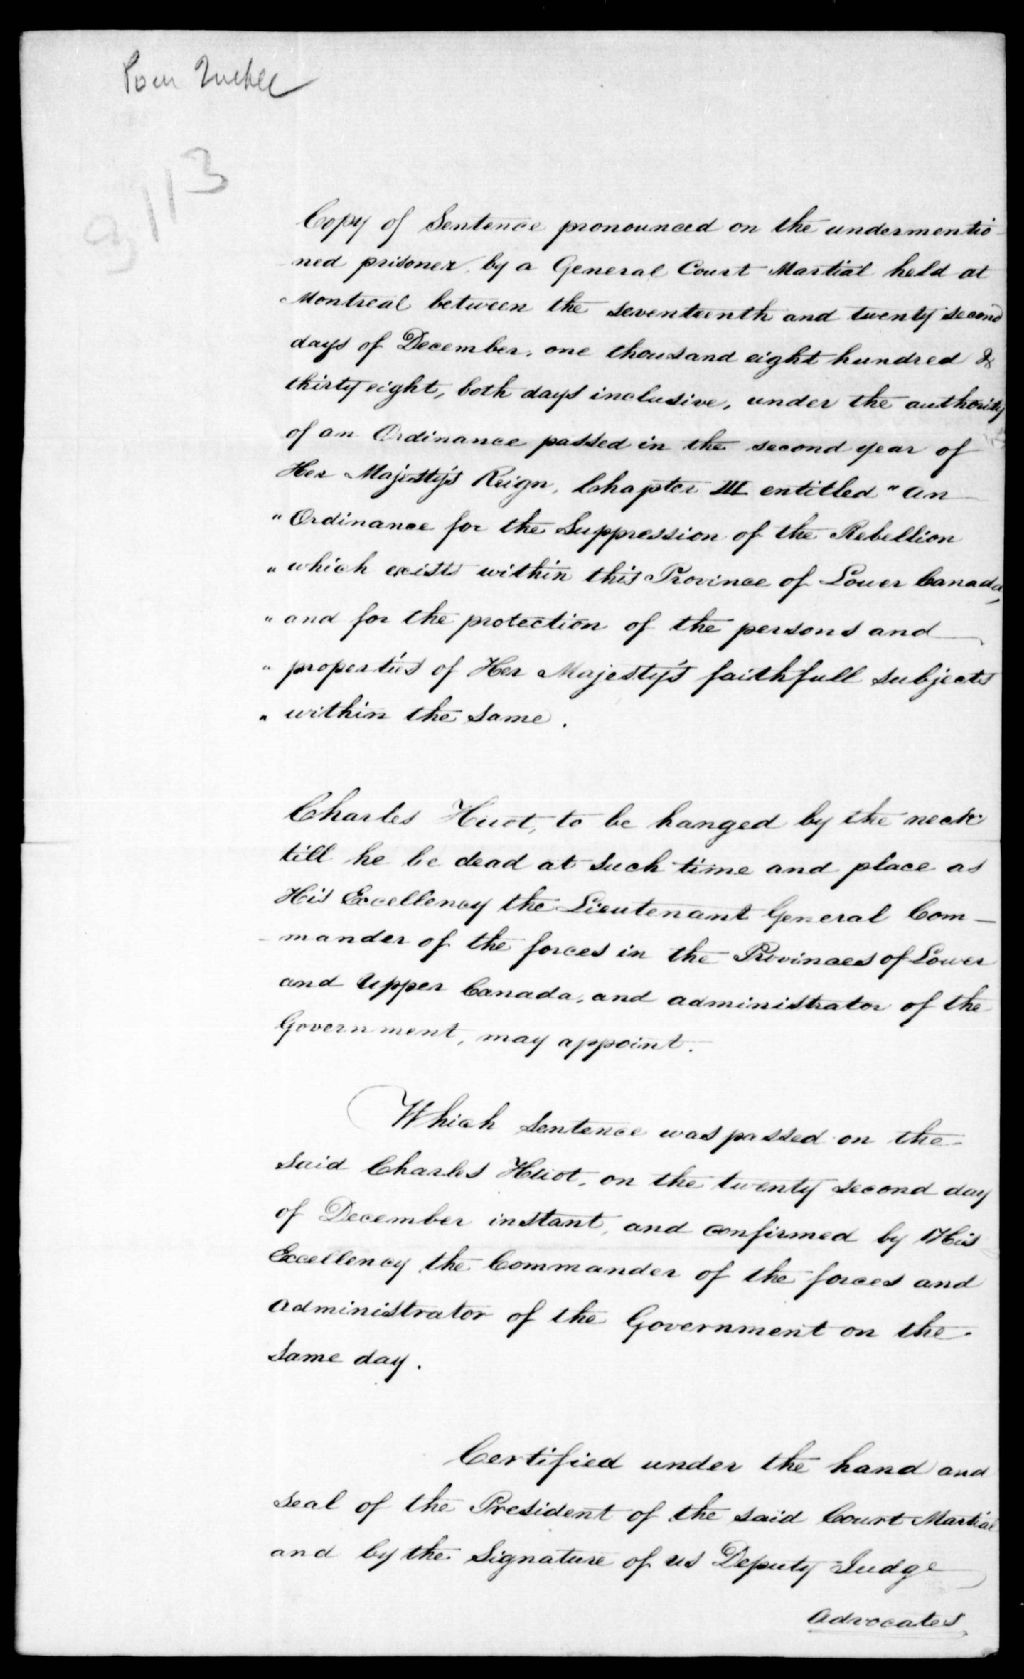 3113
Copy of Sentence pronounced on the undermentio-
ned prisoner by a General Court Martial held at
Montreal between the seventeenth and twenty second
days of December, one thousand eight hundred &
thirty eight, both days inclusive, under the authority
of an Ordinance passed in the second year of
Her Majesty's Reign, Chapter III entitled "An
"Ordinance for the Suppression of the Rebellion
"which exists within this Province of Lower Canada,
"and for the protection of the persons and
"properties of Her Majesty's faithfull subjects
"within the same.
Charles Huot, to be hanged by the neck
till he be dead at such time and place as
His Excellency the Lieutenant General Com-
-mander of the forces in the Provinces of Lower
and Upper Canada, and administrator of the
Government, may appoint.
Which sentence was passed on the
said Charles Huot, on the twenty second day
of December instant, and confirmed by His
Excellency the Commander of the forces and
administrator of the Government on the
same day.
Certified under the hand and
seal of the President of the said Court Martial
and by the Signature of us Deputy Judge
Advocates,